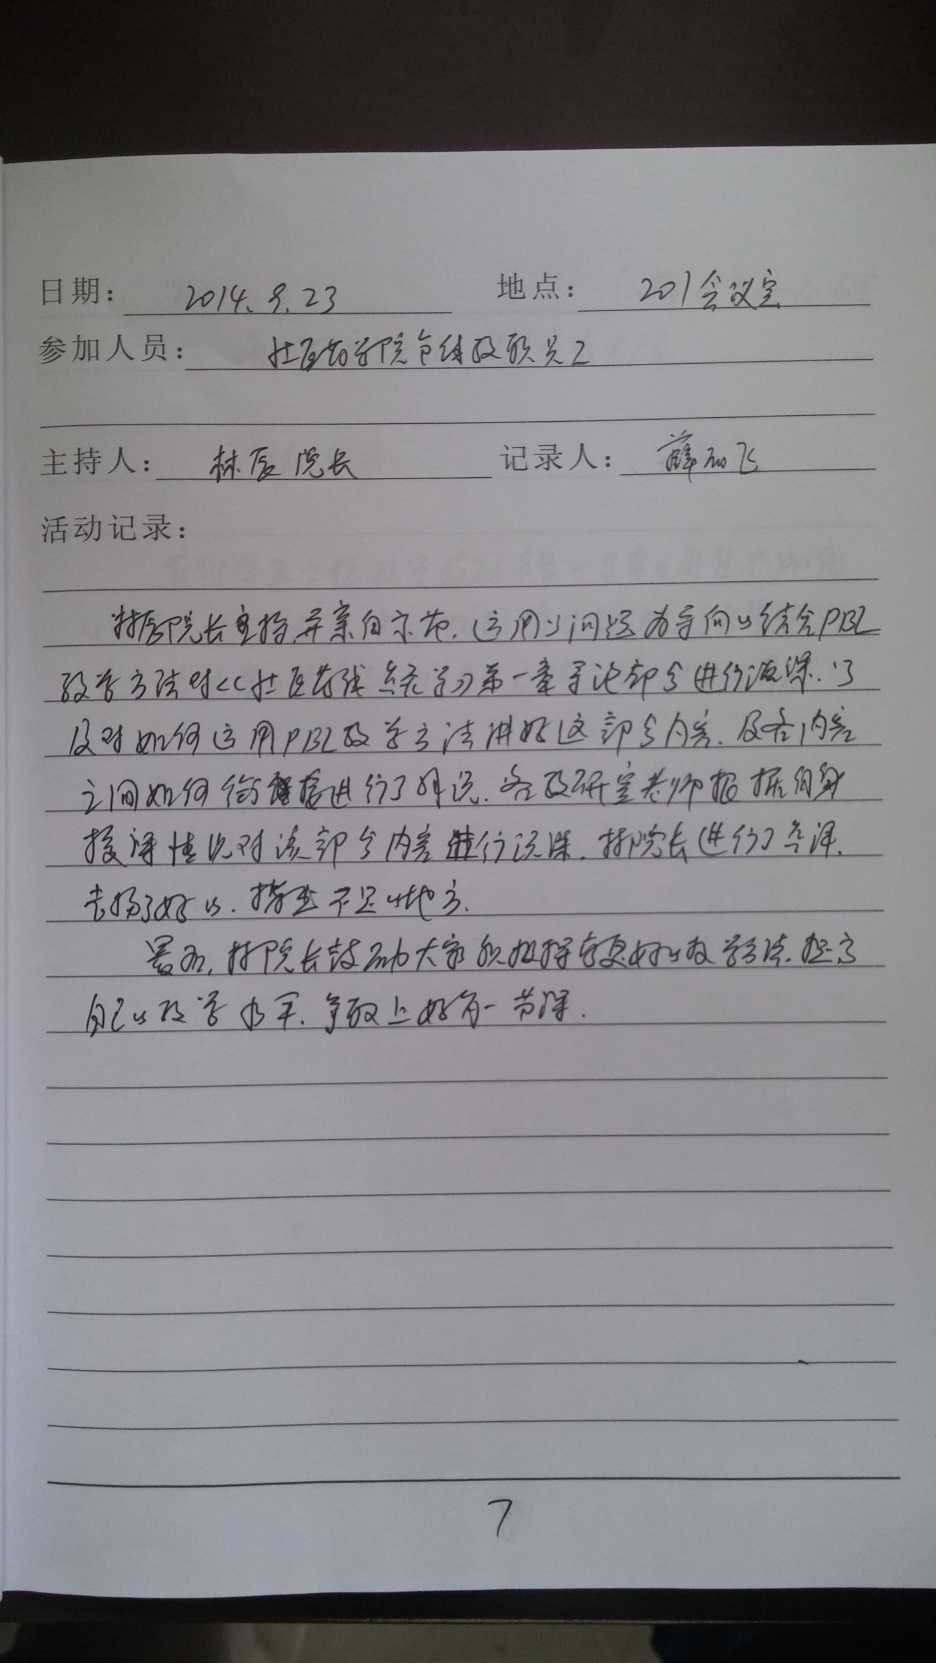 日期： 2014.9.23 地点： 201会议室
参加人员： 壮医药学院全体教职员工
主持人： 林辰院长 记录人： 薛丽飞
活动记录：
林辰院长主持并亲自示范，运用以问题为导向的结合PBL
教学方法对<<壮医药线 学》第一章导论部分进行说课，以
及对如何运用PBL教学方法讲好这部分内容，及各内容
之间如何衔接进行了解说，各教研室老师根据自身
授课情况对该部分内容进行说课，林院长进行了点评，
表扬了好的，指出不足的地方。
最后，林院长鼓励大家积极探索更好的教学方法，提高
自己的教学水平，争取上好每一节课。
7